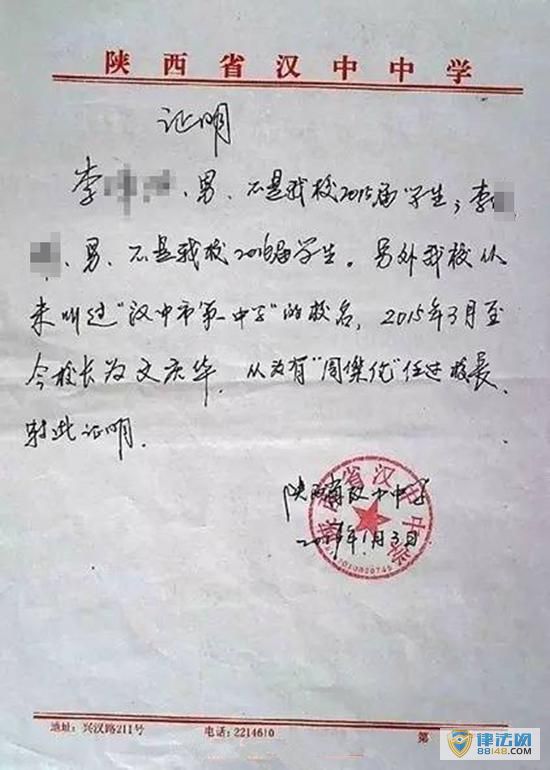 陕西省汉中中学
证明
李 、男、不是我校2015届学生;李
、男、不是我校2016届学生。另外我校从
未叫过"汉中市第一中学"的校名,2015年3月至
今校长为文庆华,从未有"周傑 "任过校长、
特此证明.
陕西省汉中中学
年1月3日
陕西省汉中中学
地址:兴汉路211号 电话:2214610 第
律法网
88148.COM